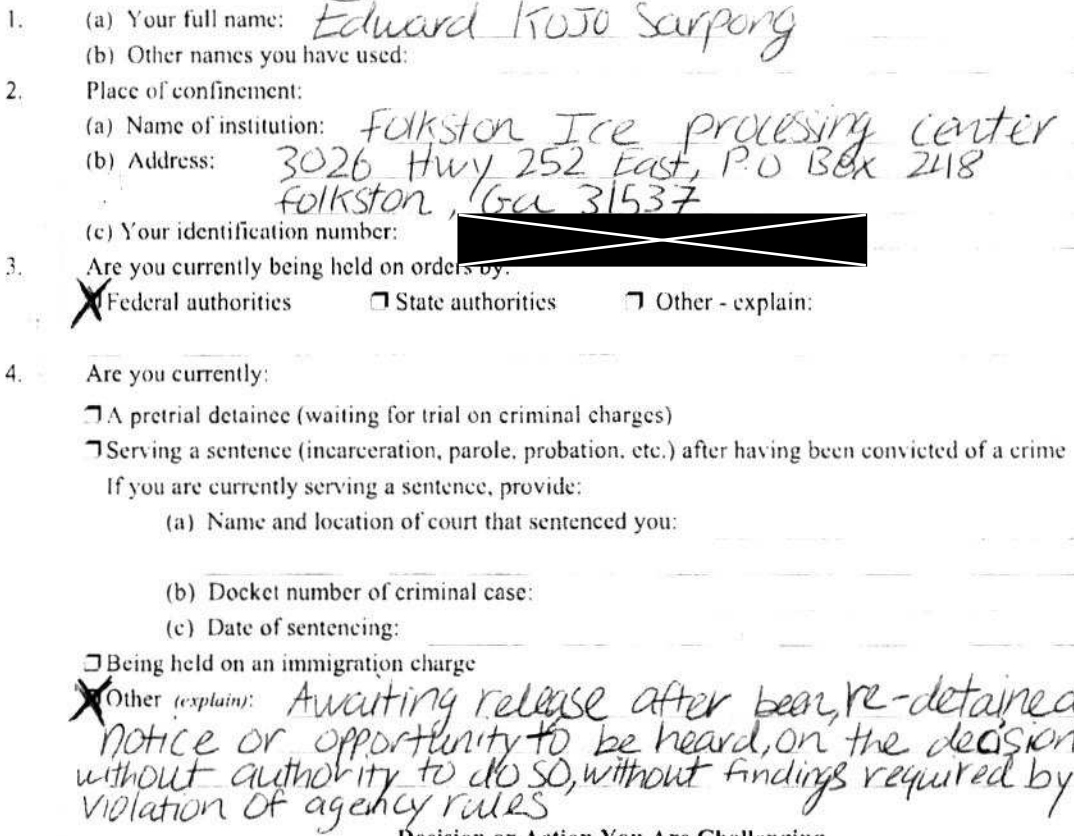 1. (a) Your full name: Edward KOJO Sarpong
(b) Other names you have used:
2. Place of confinement:
(a) Name of institution: Folkston Ice processing center
(b) Address: 3026 Hwy 252 East, P.O Box 248
folkston, Ga 31537
(c) Your identification number:
3. Are you currently being held on orders by:
Federal authorities State authorities Other - explain:
4. Are you currently:
A pretrial detainee (waiting for trial on criminal charges)
Serving a sentence (incarceration, parole, probation, etc.) after having been convicted of a crime
If you are currently serving a sentence, provide:
(a) Name and location of court that sentenced you:
(b) Docket number of criminal case:
(c) Date of sentencing:
Being held on an immigration charge
Other (explain): Awaiting release after been, re-detained
notice or opportunity to be heard, on the decision
without authority to do so, without findings required by
violation of agency rules
Decision or Action You Are Challenging